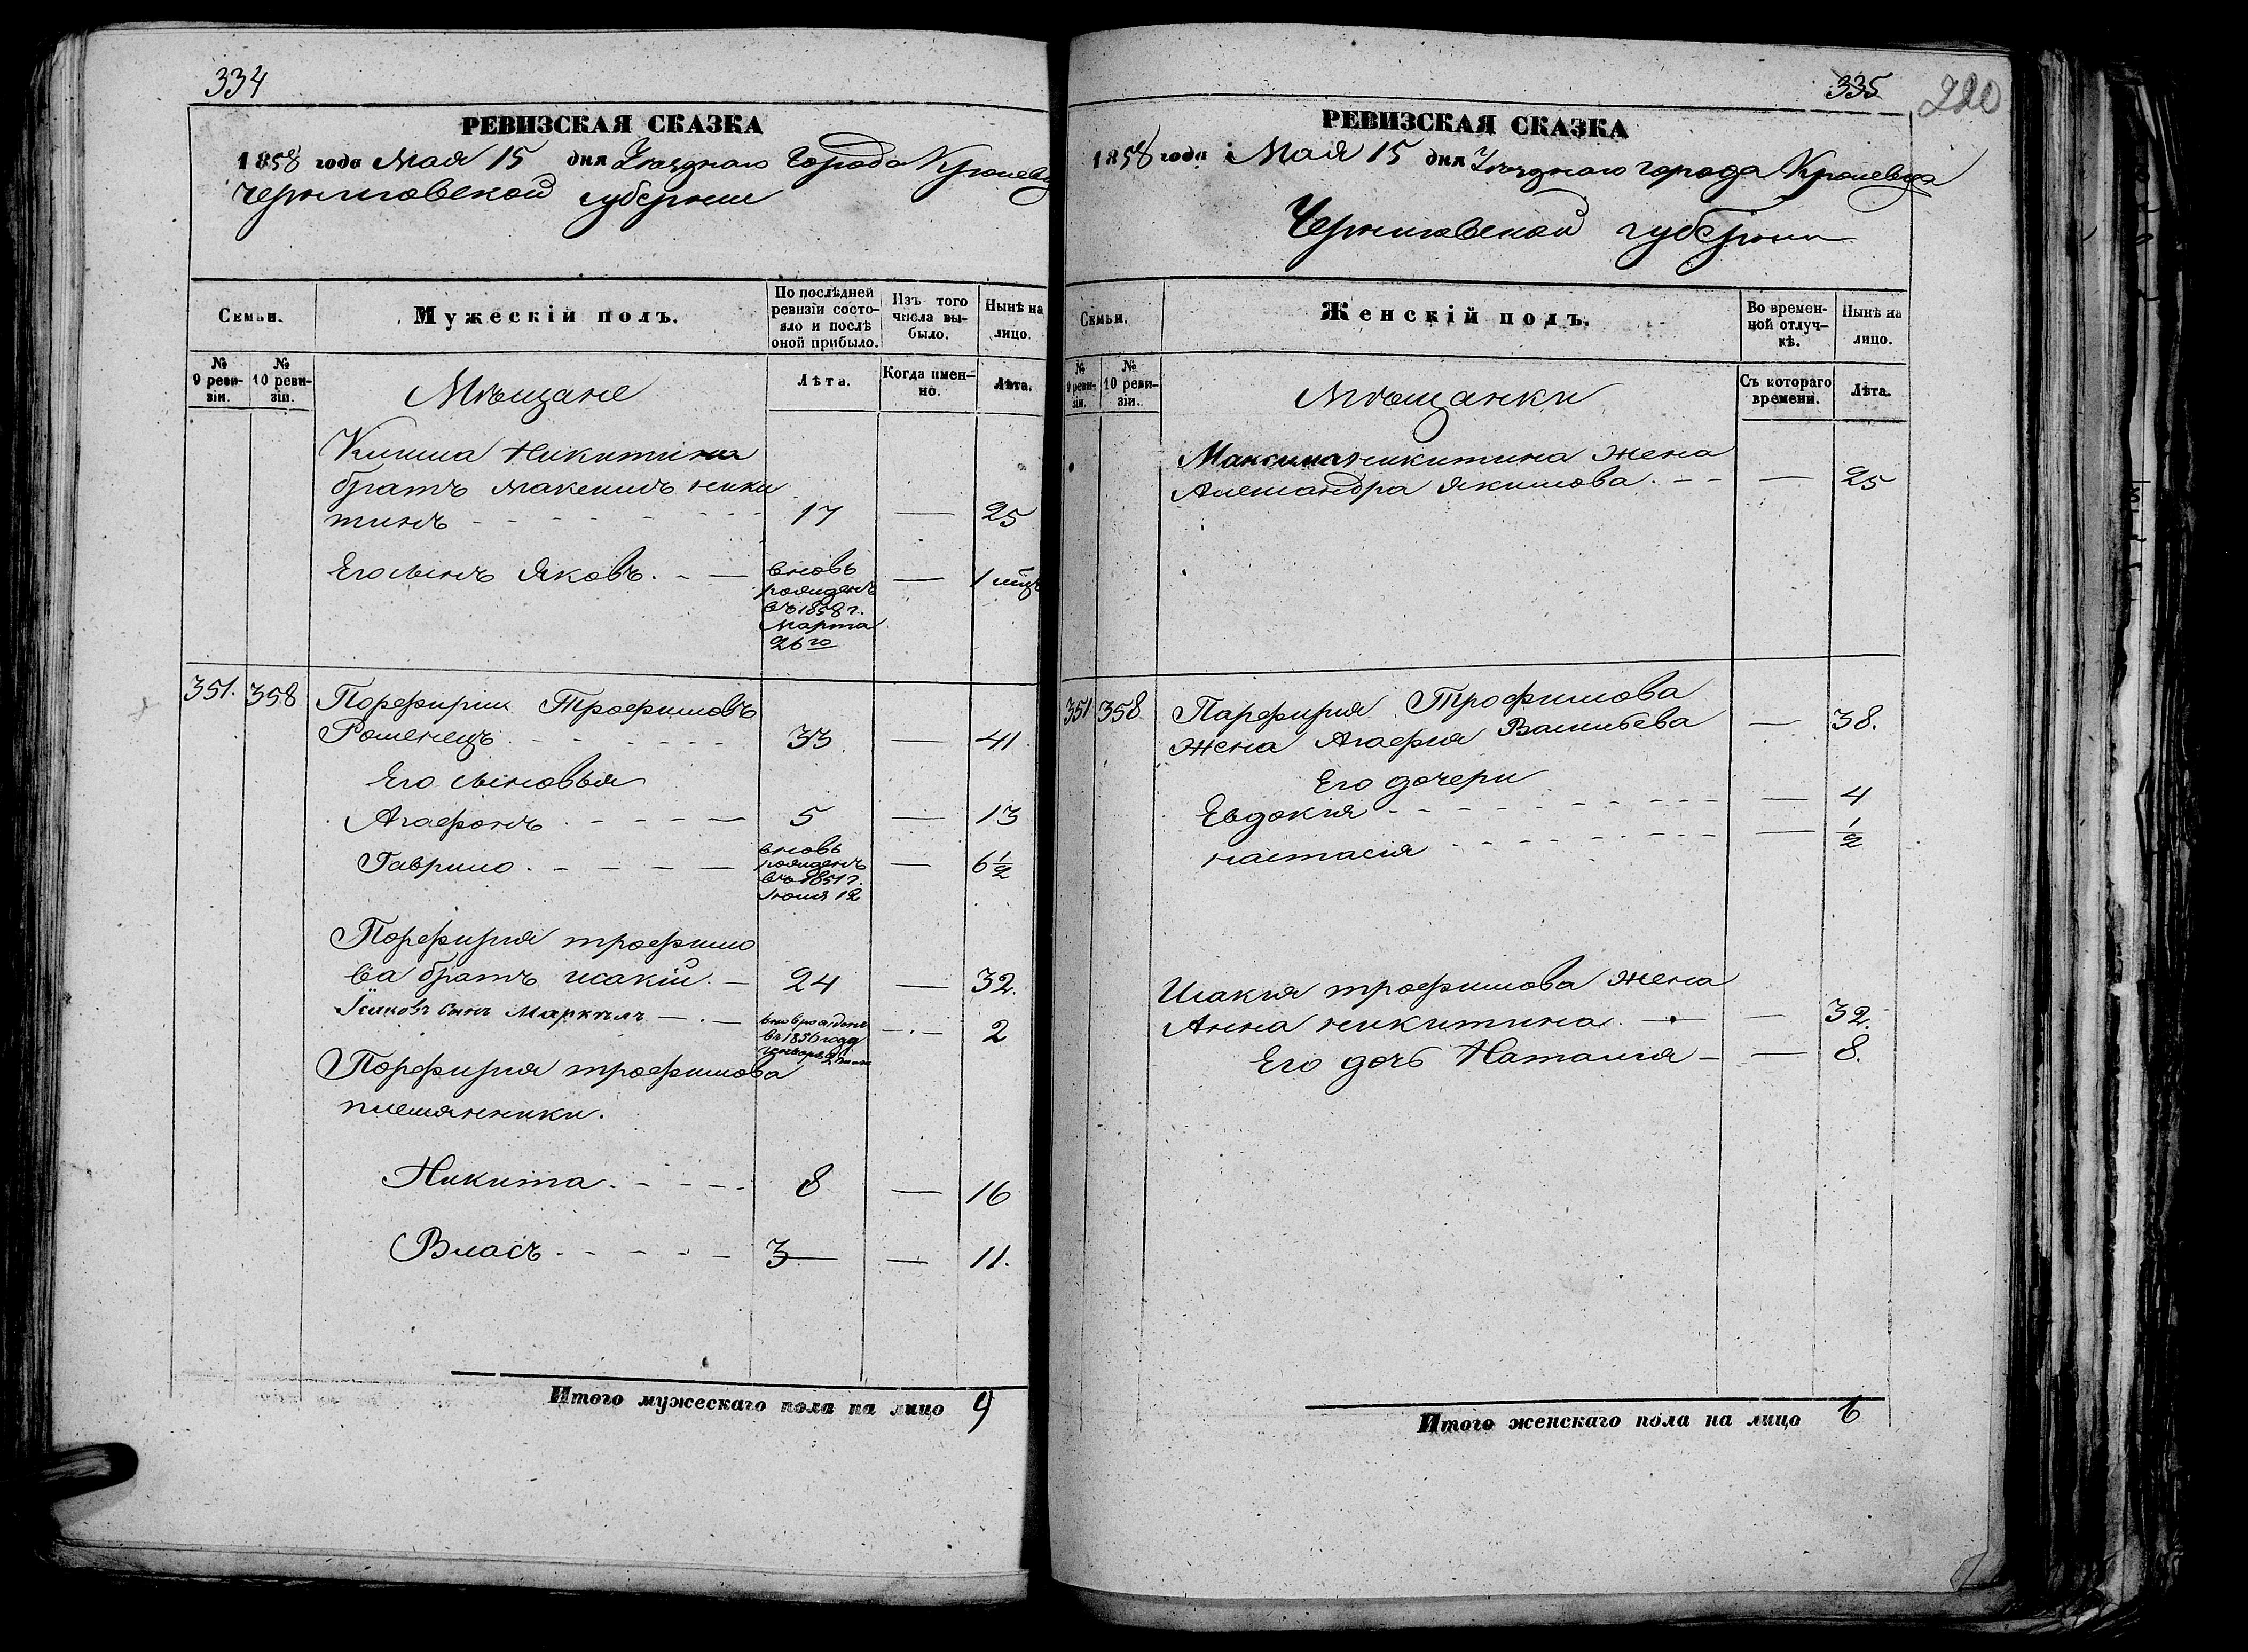 334
РЕВИЗСКАЯ СКАЗКА
1858 года Мая 15 дня Уезднаго Города Кролевц
Черниговской губернии
Семьи.
Мужескій полъ.
По послѣдней ревизіи состояло и послѣ оной прибыло.
Изъ того числа выбыло.
Нынѣ на лицо.
№ 9 ревизіи.
№ 10 ревизіи.
Мѣщане
Лѣта.
Когда именно.
Лѣта.
Климa Никитина
братъ Максимъ Ники
тинъ - - - 17 — 25
Его сынъ Яковъ. - — вновь — 1 мцъ
рожденъ
въ 1858 г.
Марта
26го
351. 358 Порфирий Трофимовъ
Роменецъ. - - - 33 — 41.
Его сыновья
Агафонъ. - - - — 5 — 13
Гаврило. - - - — вновь — 6 1/2
рожденъ
въ 1851 г.
Июня 12
Порфирия трофимо
ва братъ исакій. — 24 — 32.
сынъ Маркелъ — . — — . — 2
Порфирия трофимова
племянники.
Никита. - - - - 8 — 16
Власъ. - - - - — 3 — 11.
Итого мужескаго пола на лицо 9
335
220
РЕВИЗСКАЯ СКАЗКА
1858 года Мая 15 дня Уезднаго города Кролевца
Черниговской губернии
Семьи.
Женскій полъ.
Во временной отлучкѣ.
Нынѣ на лицо.
№ 9 ревизіи.
№ 10 ревизіи.
Мѣщанки
Съ котораго времени.
Лѣта.
Максима никитина жена
Александра Якимова. - - — 25
351 358 Парфирия Трофимова
жена Агафия Васильева — 38.
Его дочери
Евдокия - - - — 4
настасия - - - — 1/2
Исакия трофимова жена
Анна никитина. — — 32.
Его дочь Наталия — — 8.
Итого женскаго пола на лицо 6